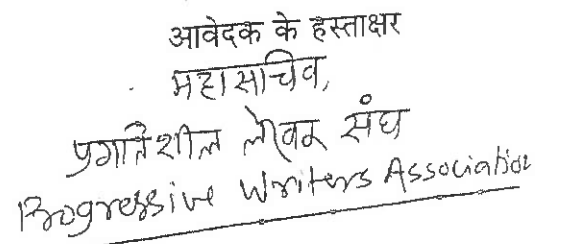 आवेदक के हस्ताक्षर
महासचिव,
प्रगतिशील लेखक संघ
Progressive Writers Association